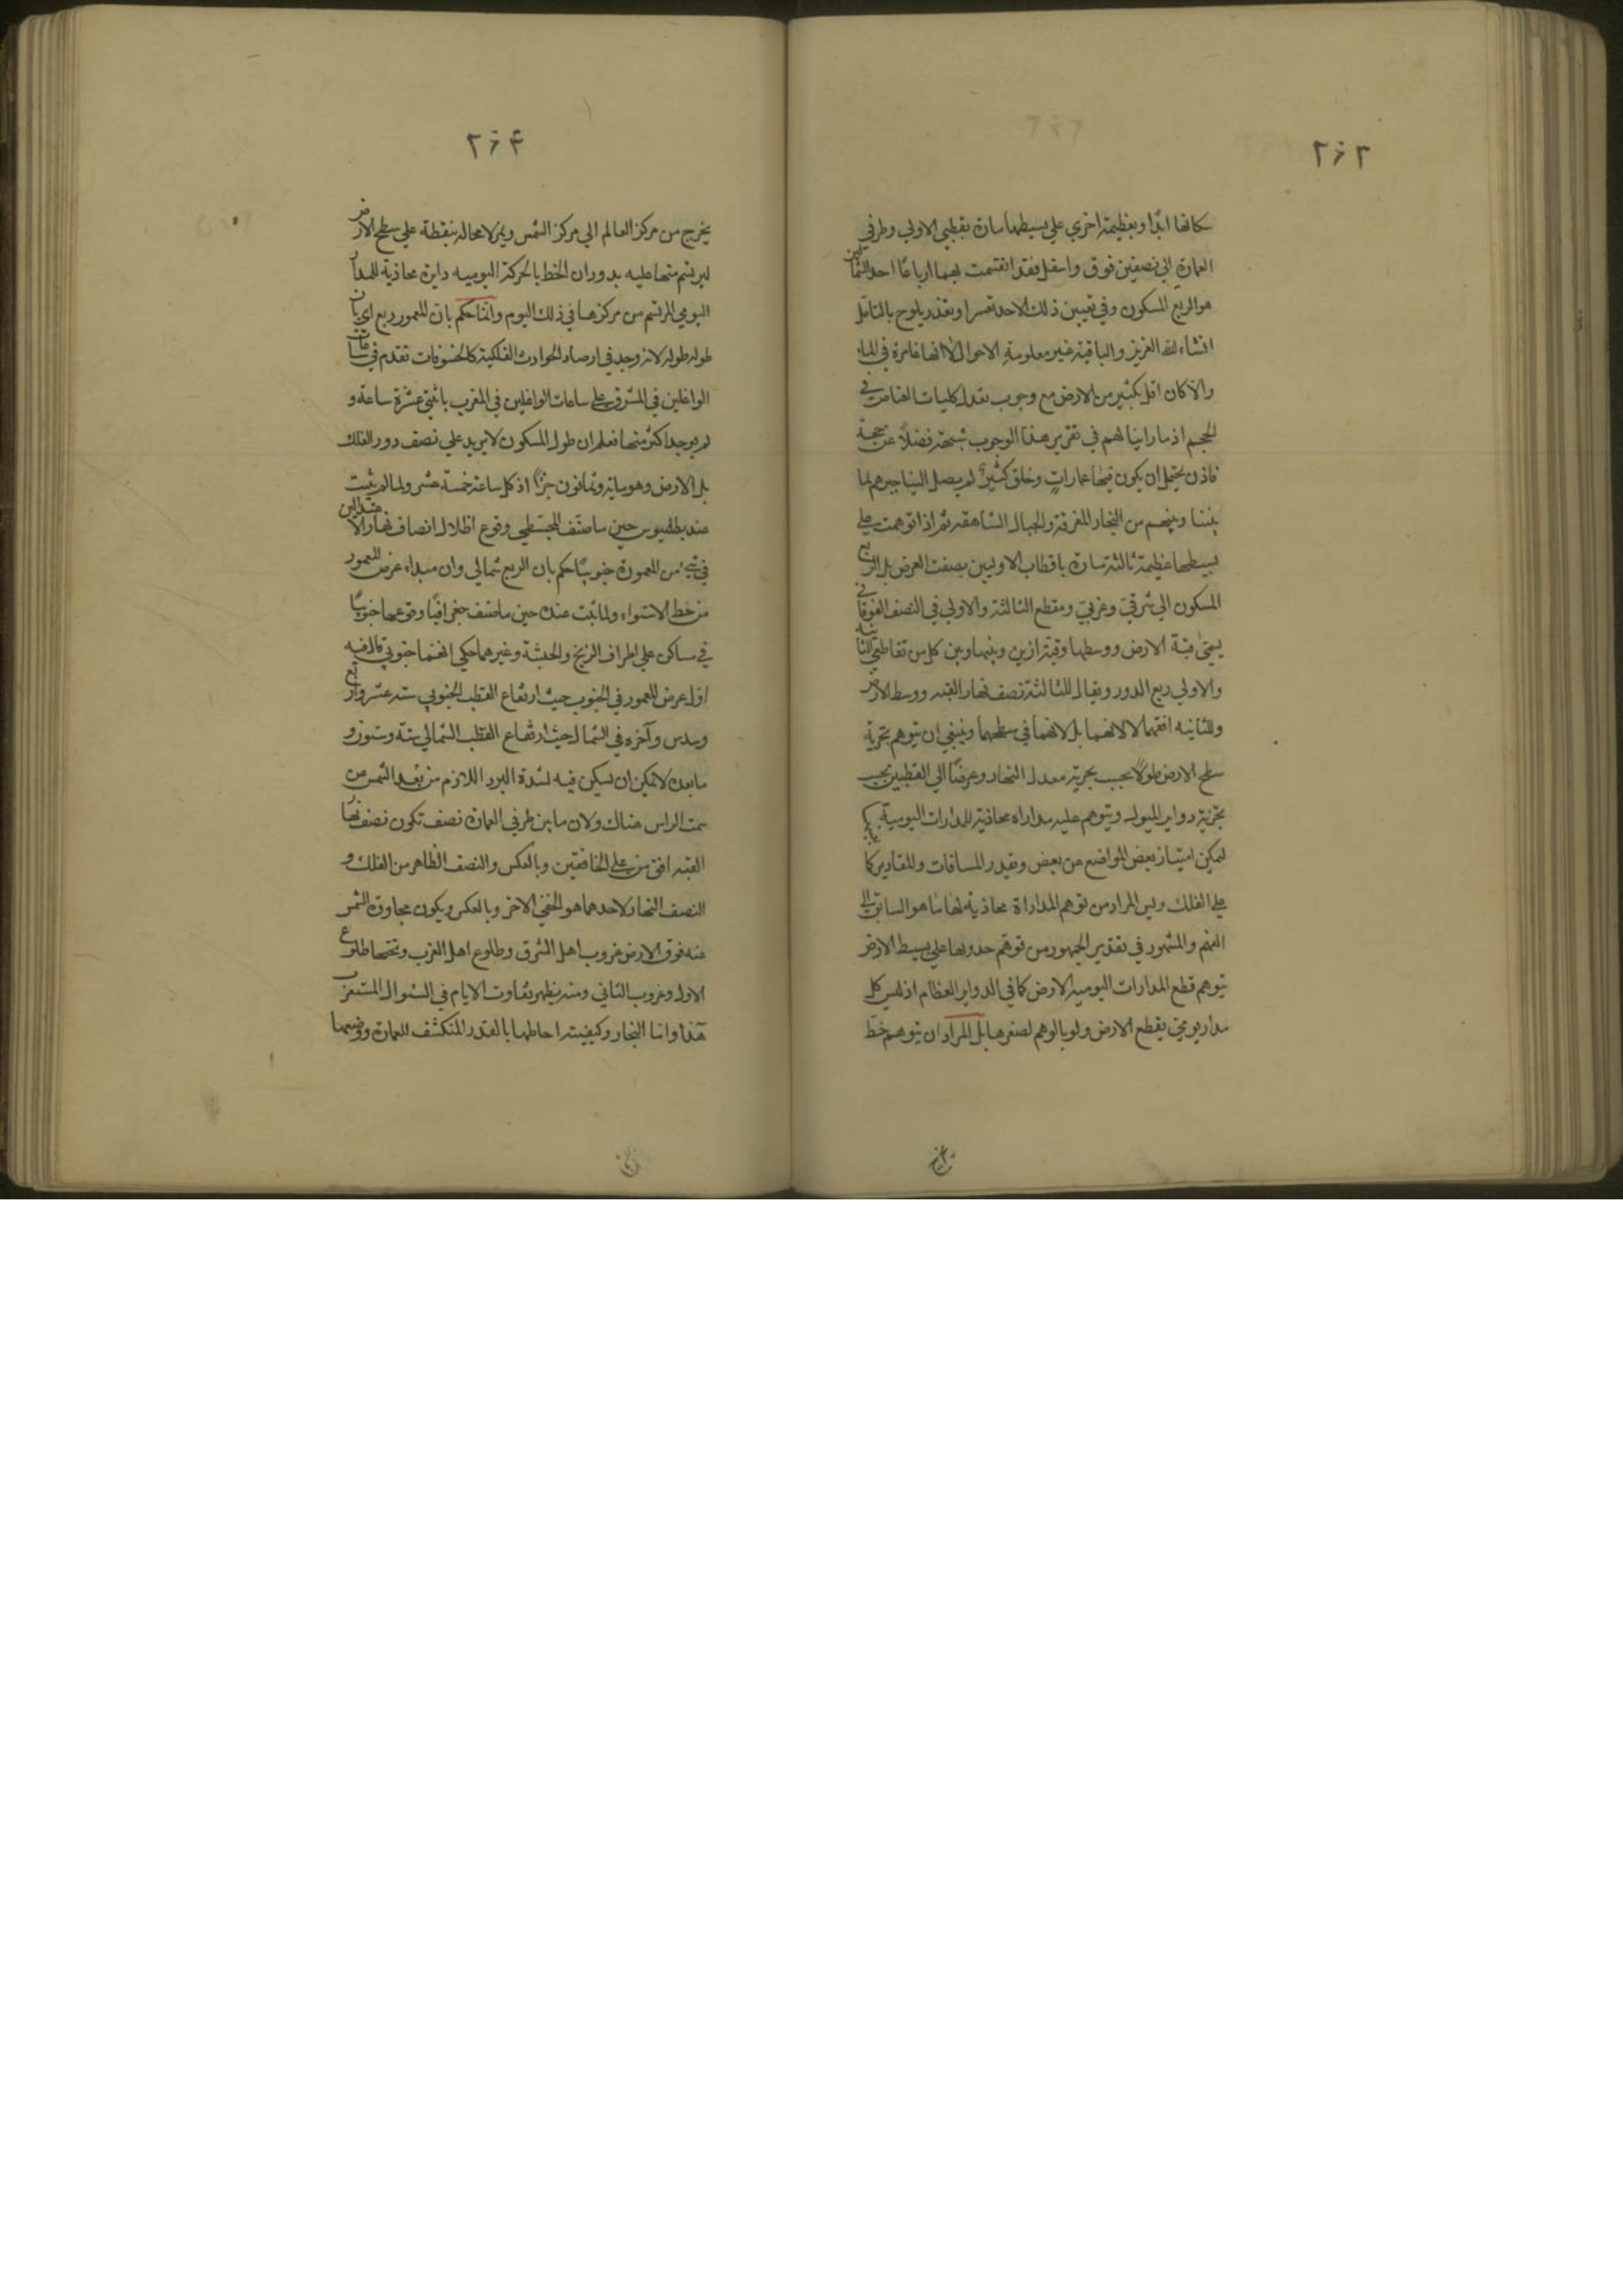 ٢٠٣
سكانها ابدًا وبعظيمة اخري علي بسيطها مارة بقطبي الاولي وطرفي
العمارة الي نصفين فوق واسفل فقد انقسمت بهما ارباعًا احد الشماليين
هو الربع المسكون وفي تعيين ذلك الاحد تعسر او تعذر يلوح بالتامل
انشاء الله العزيز والباقية غير معلومة الاحوال الا انها غامرة في الماء
والا كان اقل بكثير من الارض مع وجوب تعدل كليات العناصر في
الحجم اذ ما راينا لهم في تقرير هذا الوجوب شبهة فضلًا عن حجة
فاذن يحتمل ان يكون فيها عمارات وخلق كثير لم يصل الينا خبرهم لما
بيننا وبينهم من البحار المغرقة والجبال الشاهقة ثم اذا توهمت علي
بسيطها عظيمة ثالثة مارة باقطاب الاوليين نصفت العرض بل الربع
المسكون الي شرقي وغربي ومقطع الثالثة والاولي في النصف الفوقاني
يسمي قبة الارض ووسطها وقبة ازين وبينها وبين كل من تقاطعي الثانية
والاولي ربع الدور ويقال للثالثة نصف نهار القبة ووسط الارض
وللثانيه افقهما لا لانهما بل لانهما في سطحهما وينبغي ان تتوهم تجزية
سطح الارض طولًا بحسب تجزية معدل النهار وعرضًا الي القطبين بحسب
تجزية دواير الميول ويتوهم عليه مداراة محاذية للمدارات اليومية
ليمكن امتياز بعض المواضع عن بعض وتقدر المسافات والمقادير كما
علي الفلك وليس المراد من توهم المداراة محاذية لها ما هو السابق الي
الفهم والمشهور في تقدير الجمهور من توهم حدوثها علي بسيط الارض
بتوهم قطع المدارات اليومية الارض كما في الدواير العظام اذ ليس كل
مدار يومي يقطع الارض ولو بالوهم لصغرها بل المراد ان يتوهم خط
٢٠٤
يخرج من مركز العالم الي مركز الشمس ويمر لا محالة بنقطة علي سطح الارض
ليرتسم منها عليه بدوران الخط بالحركة اليومية دايرة محاذية للمدار
اليومي المرتسم من مركزها في ذلك اليوم وانما حكم بان المعمور ربع اي بان
طوله طوله لانه وجد في ارصاد الحوادث الفلكية كالخسوفات تقدم في ساعات
الواغلين في المشرق علي ساعات الواغلين في المغرب باثنتي عشرة ساعة و
لم يوجد اكثر منها فعلم ان طول المسكون لا يزيد علي نصف دور الفلك
بل الارض وهو ماية وثمانون جزءًا اذ كل ساعة خمسة عشر ولما لم يثبت
عند بطلميوس حين ما صنف المجسطي وقوع اظلال انصاف نهار الاعتدالين
في شيء من المعمورة جنوبيًا حكم بان الربع شمالي وان مبداء عرض المعمور
من خط الاستواء ولما ثبت عنده حين ما صنف جغرافيا وقوعها جنوبيًا
في مساكن علي اطراف الزنج والحبشة وغيرهما حكي انهما جنوبي قال فيه
اول عرض المعمور في الجنوب حيث ارتفاع القطب الجنوبي ستة عشر واربع
وسدس وآخره في الشمال حيث ارتفاع القطب الشمالي ستة وستون و
ما بعده لا يمكن ان يسكن فيه لشدة البرد اللازم من بعد الشمس عن
سمت الراس هناك ولان ما بين طرفي العمارة نصف تكون نصف نهار
القبة افق من علي الخافقين وبالعكس والنصف الظاهر من الفلك و
النصف النهار لاحدهما هو الخفي الاخر وبالعكس ويكون مجاوزة الشمس
عنه فوق الارض غروب اهل الشرق وطلوع اهل الغرب وتحتها طلوع
الاول وغروب الثاني ومنه يظهر تفاوت الايام في السوال المستغرب
هذا واما البحار وكيفية احاطتها بالقدر المنكشف للعمارة ووضعها